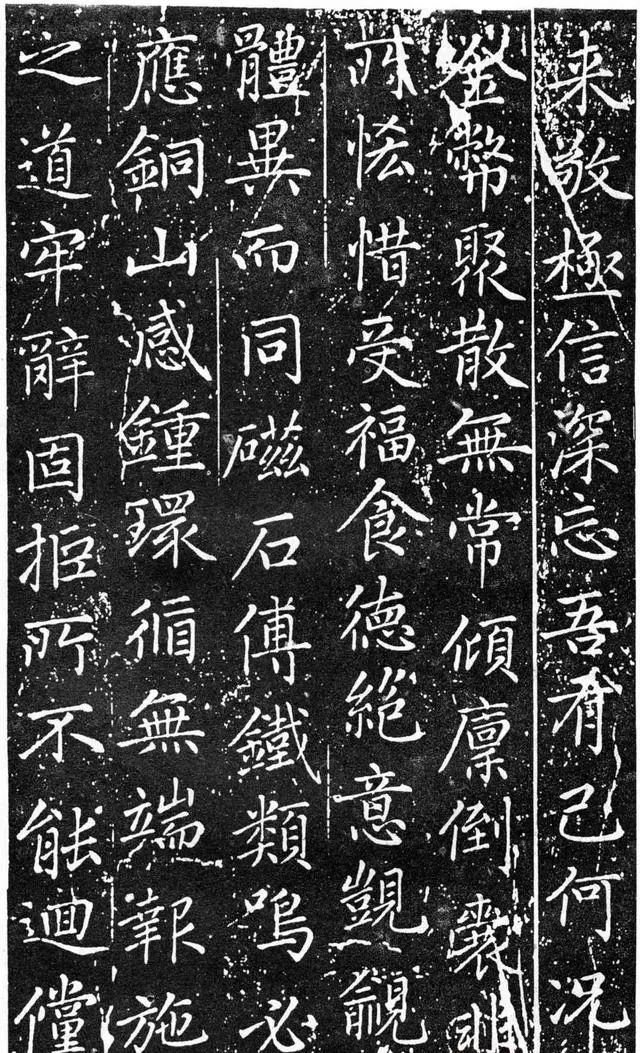 来敬極信深忘吾有己何况
金幣聚散無常傾廪倒囊
所恡惜受福食德絕意覬覦
體異而同磁石傅鐵類鳴必
應銅山感鍾環循無端報施
之道牢辭固拒所不能迴儻